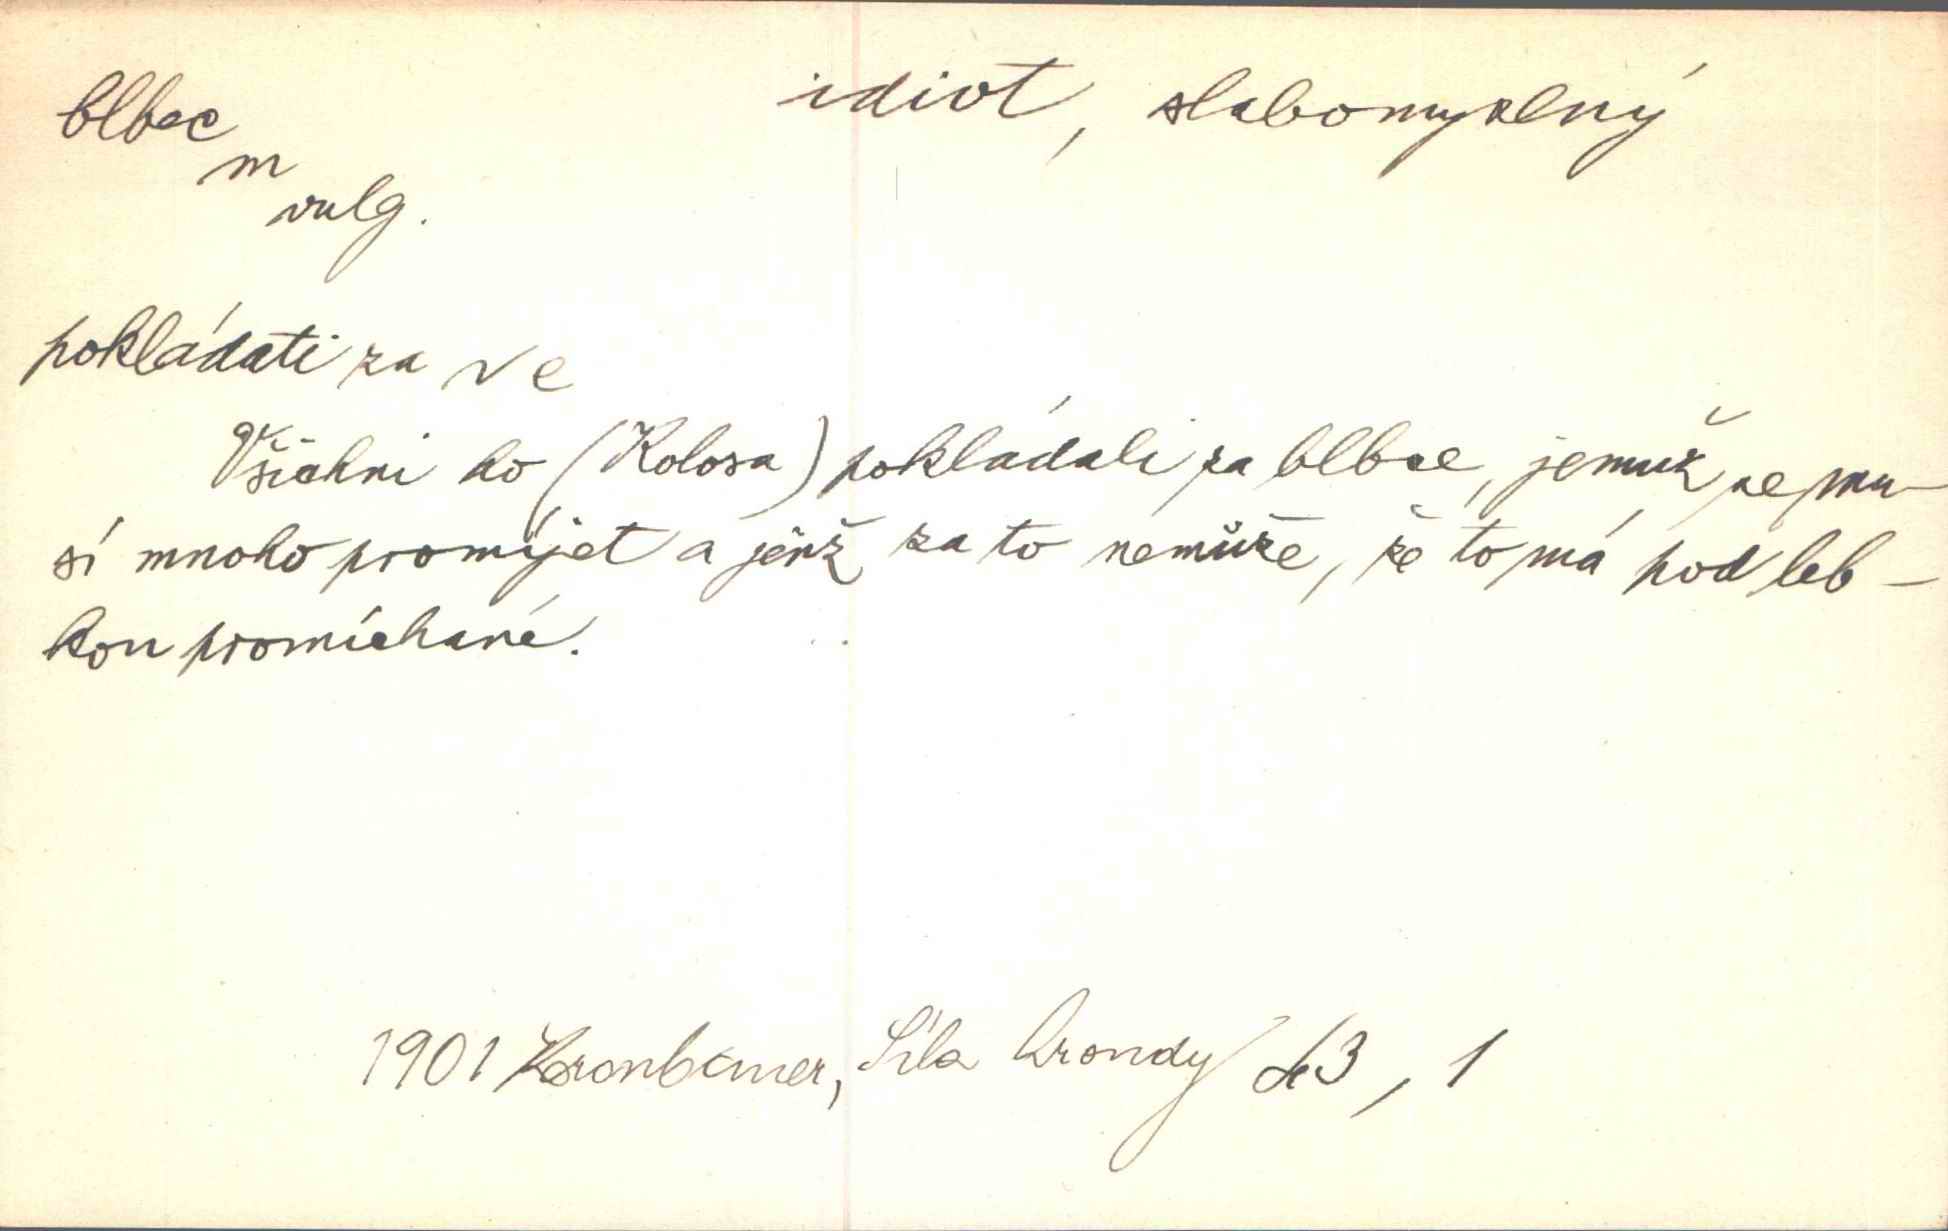 blbec
idiot, slabomyslný
m
vulg.
pokládati za ~e
Všichni ho (Kolosa) pokládali za blbce, jemuž se mu-
sí mnoho promíjet a jenž za to nemůže, že to má pod leb-
kou promíchané.
1901 Kronbauer, Síla hroudy 3, 1